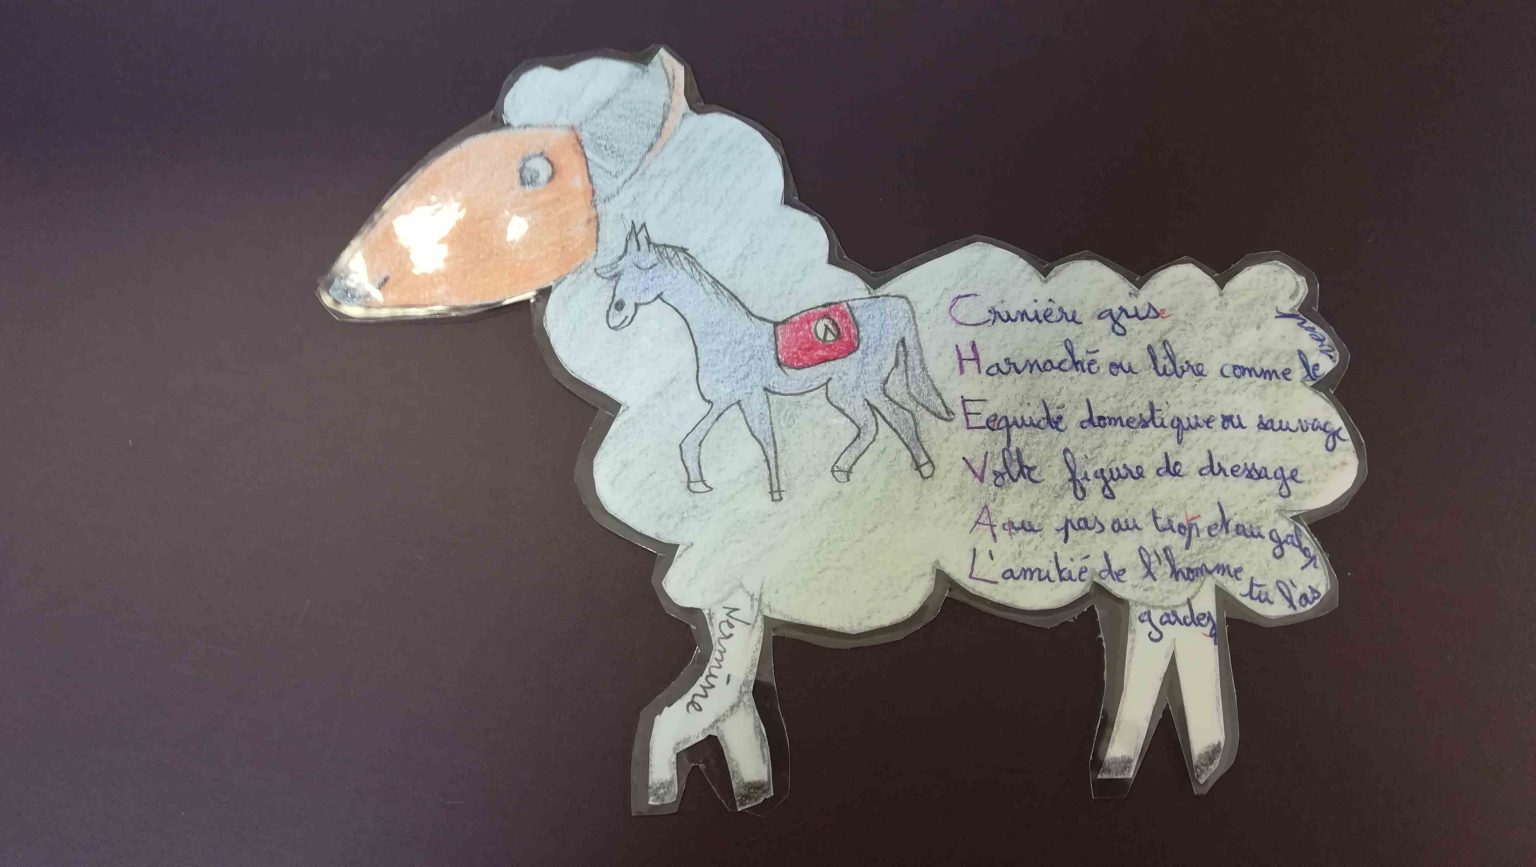 Crinière grise
Harnaché ou libre comme le
vent
Eequidé domestique ou sauvage
Volte figure de dressage
Aau pas au trop et au galop
L'amitié de l'homme
tu l'as
gardes
N
Nermine